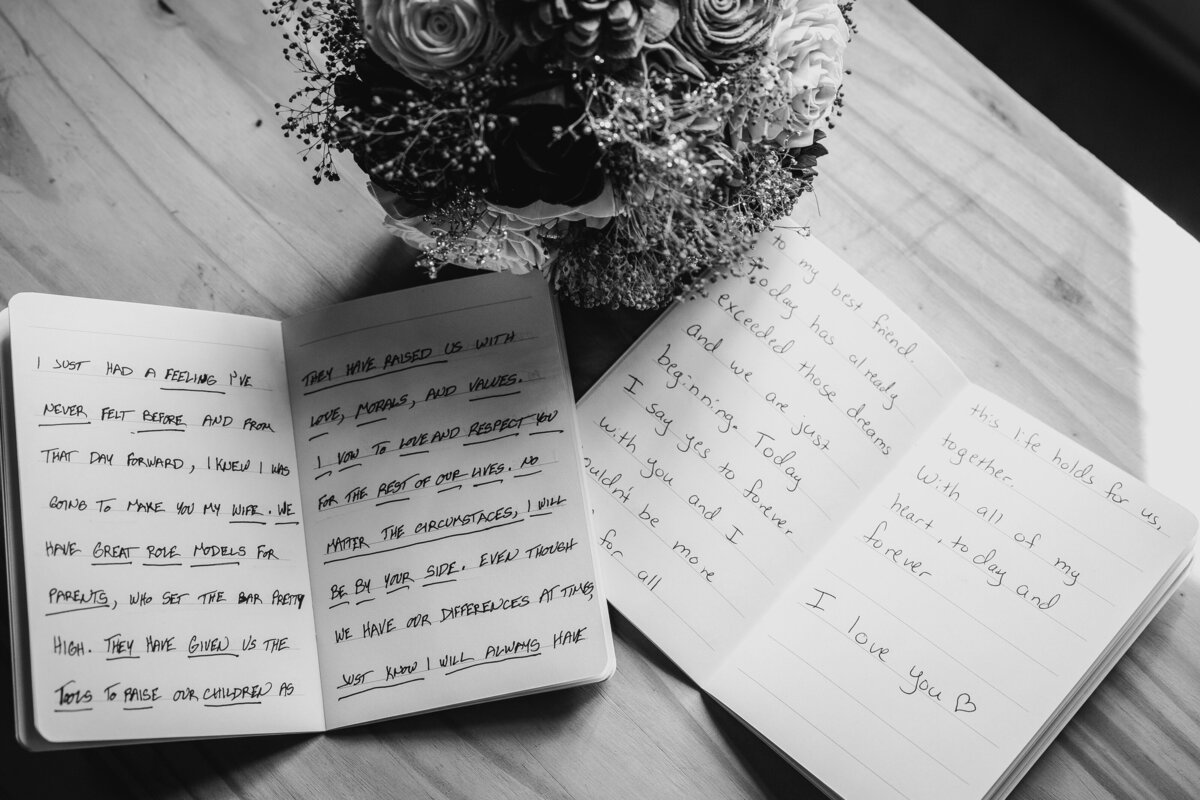 I JUST HAD A FEELING I'VE
NEVER FELT BEFORE AND FROM
THAT DAY FORWARD, I KNEW I WAS
GOING TO MAKE YOU MY WIFE. WE
HAVE GREAT ROLE MODELS FOR
PARENTS, WHO SET THE BAR PRETTY
HIGH. THEY HAVE GIVEN US THE
TOOLS TO RAISE OUR CHILDREN AS
THEY HAVE RAISED US WITH
LOVE, MORALS, AND VALUES.
I VOW TO LOVE AND RESPECT YOU
FOR THE REST OF OUR LIVES. NO
MATTER THE CIRCUMSTACES, I WILL
BE BY YOUR SIDE. EVEN THOUGH
WE HAVE OUR DIFFERENCES AT TIMES,
JUST KNOW I WILL ALWAYS HAVE
to my best friend.
Today has already
exceeded those dreams
and we are just
beginning. Today
I say yes to forever
with you and I
ouldn't be more
for all
this life holds for us,
together.
With all of my
heart, today and
forever
I love you ♡